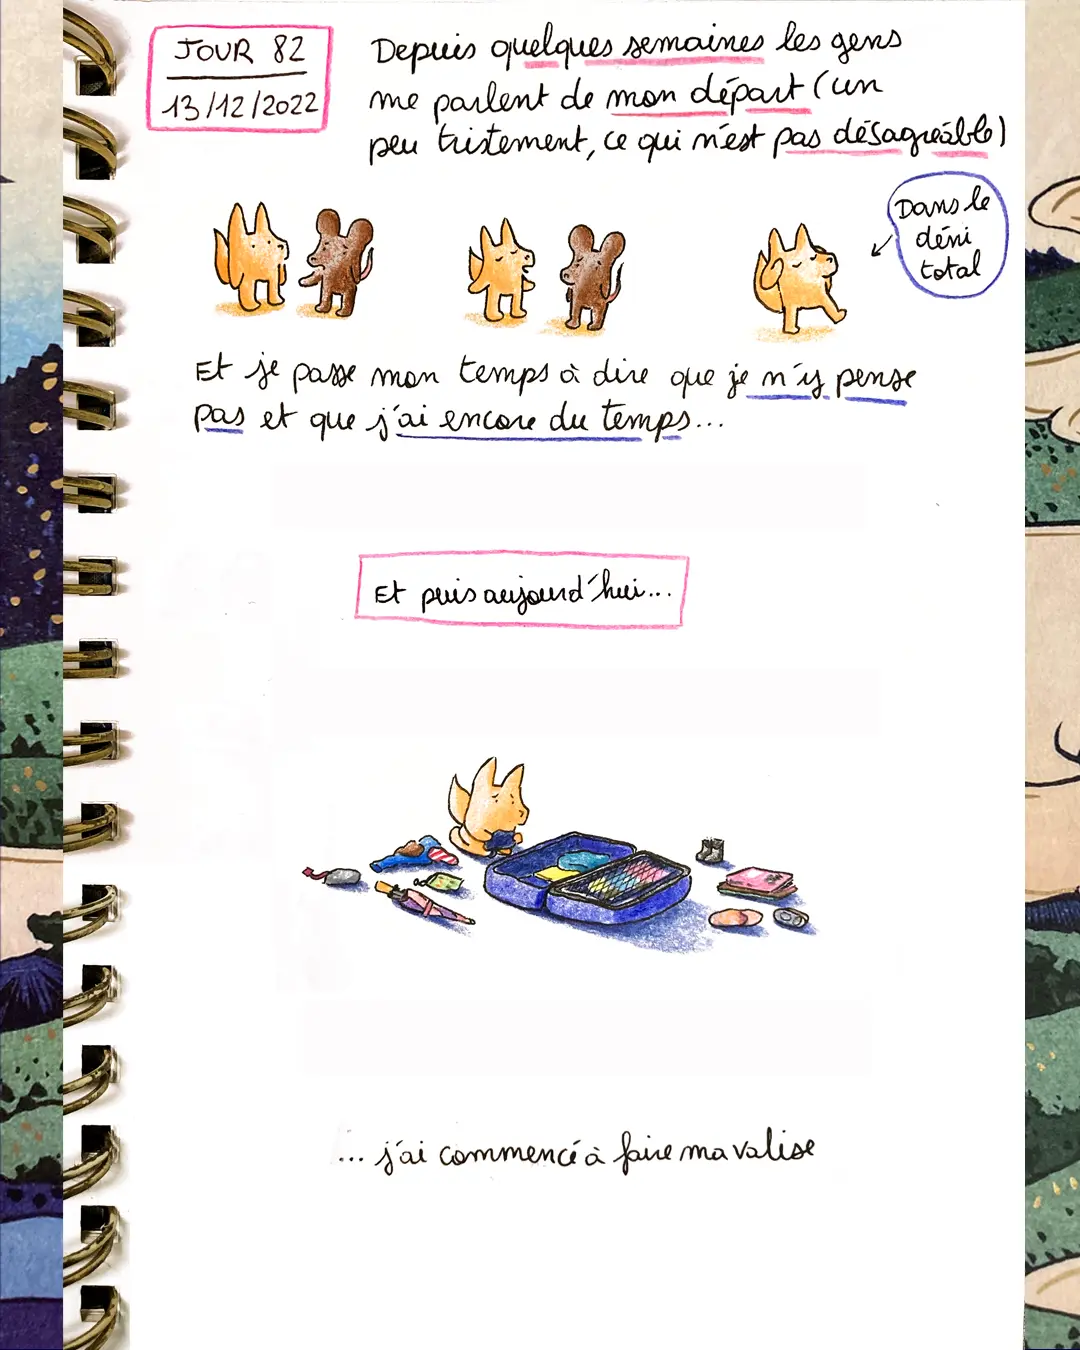 JOUR 82
13/12/2022
Depuis quelques semaines les gens
me parlent de mon départ (un
peu tristement, ce qui n'est pas désagréable)
Dans le
déni
total
Et je passe mon temps à dire que je n'y pense
pas et que j'ai encore du temps...
Et puis aujourd'hui...
... j'ai commencé à faire ma valise